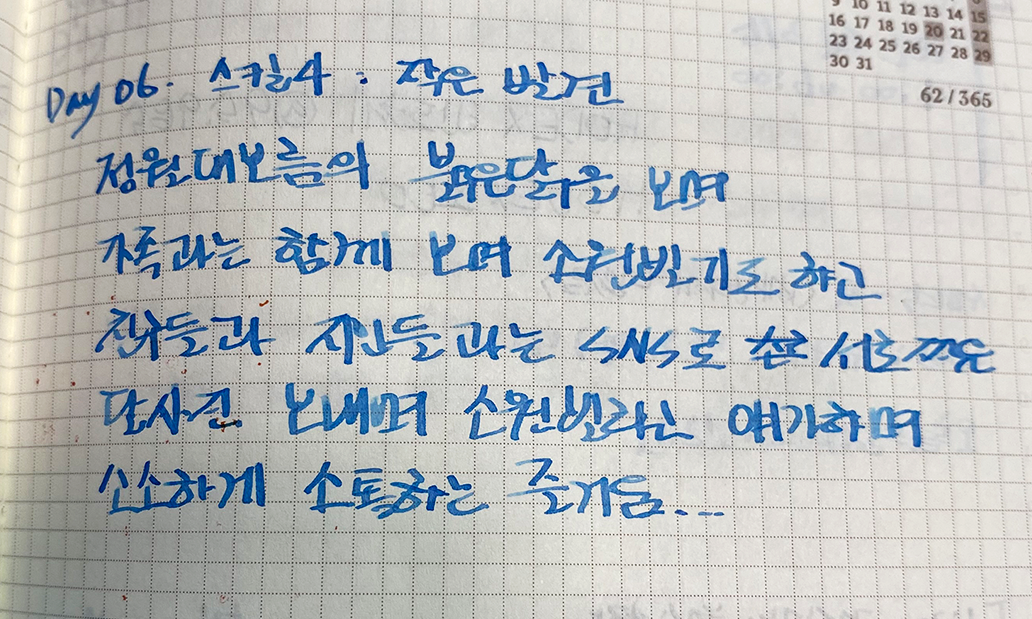 9 10 11 12 13 14 15
16 17 18 19 20 21 22
23 24 25 26 27 28 29
30 31
62 / 365
Day 06. 스킬4 : 작은 발견
정월대보름의 붉은달을 보며
가족과는 함께 보며 소원빌기도 하고
친구들과 지인들과는 SNS로 서로 찍은
달사진 보내며 소원빌라는 얘기하며
소소하게 소통하는 즐거움...